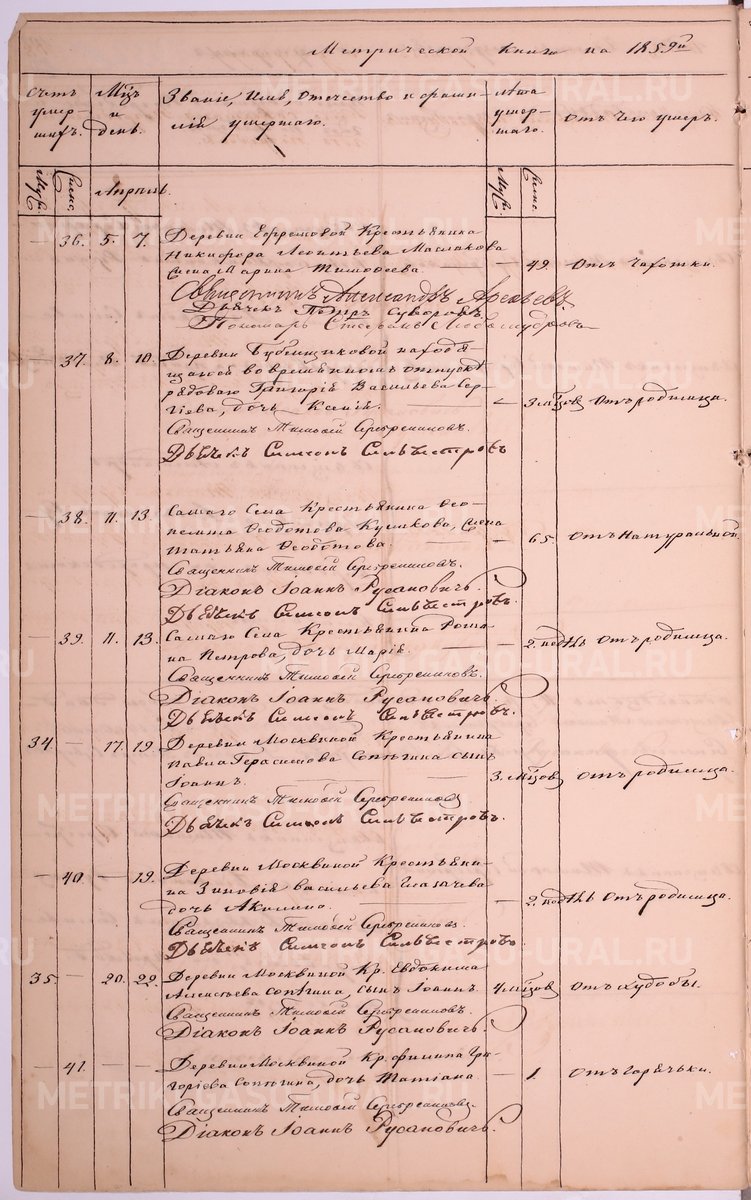 Метрической книги на 1859й
Счетъ умер-шихъ. Мцъ и день. Званіе, имя, отечество и фами-лій умершаго. Лета умер-шаго. Отъ чего умеръ.
Муж. Женс. Апрель. Муж. Женс.
— 36. 5. 7. Деревни Ефремовой Крестьянина
Никифора Леонтьева Маслакова
жена Марина Тимофеева. — 49 Отъ чахотки.
Священникъ Александръ
Дьячекъ Петръ Суворовъ
Пономарь Стефанъ Любомудровъ
— 37. 8. 10. Деревни Бубенщиковой находя-
щагося во временномъ отпуске
рядоваго Григорія Васильева Сер-
гіева, дочь Ксенія. — 3 мцовъ Отъ родимца.
Священникъ Тимофей Серебренниковъ.
Дьячекъ Симеонъ Сильвестровъ
— 38. 11. 13. Самаго Села Крестьянина Фео-
Феодотова Куликова, жена
Татьяна Федотова. — 65 Отъ натуральной.
Священникъ Тимофей Серебренниковъ.
Діаконъ Іоаннъ Русановичъ.
Дьячекъ Симеонъ Сильвестровъ.
— 39. 11. 13. Самаго Села Крестьянина Рома-
на Петрова, дочь Марія. — 2. недль Отъ родимца.
Священникъ Тимофей Серебренниковъ.
Діаконъ Іоаннъ Русановичъ
Дьячекъ Симеонъ Сильвестровъ.
34. — 17. 19. Деревни Москвиной Крестьянина
Павла Герасимова Сопягина сынъ
Іоаннъ. 3. мцовъ Отъ родимца.
Священникъ Тимофей Серебренниковъ
Дьячекъ Симеонъ Сильвестровъ.
— 40. — 19. Деревни Москвиной Крестьяни-
на Зиновія Васильева Глазачева
дочь Акилина. — 2. недль Отъ родимца.
Священникъ Тимофей Серебренниковъ.
Дьячекъ Симеонъ Сильвестровъ.
35 — 20. 22. Деревни Москвиной Кр. Евдокима
Алексѣева Сопягина, сынъ Іоаннъ. 4 мцовъ Отъ худобы.
Священникъ Тимофей Серебренниковъ.
Діаконъ Іоаннъ Русановичъ.
— 41. Деревни Москвиной Кр. Филипа Гри-
горіева Сопягина, дочь Татіана — 1. Отъ горячьки.
Священникъ Тимофей Серебренниковъ.
Діаконъ Іоаннъ Русановичъ.
METRIKI.GASO-URAL.RU